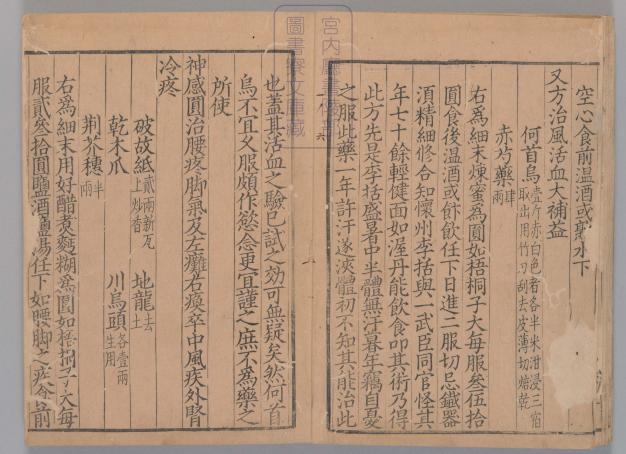 空心食前温酒或熟水下
又方治風活血大補益
何首烏壹斤赤白色者各半米泔浸三宿取出用竹刀刮去皮薄切焙乾
赤芍藥肆兩
右為細末煉蜜為圓如梧桐子大每服叁伍拾
圓食後温酒或飲任下日進二服切忌鐵器
湏精細修合知懷州李括與一武臣同官怪其
年七十餘輕健面如渥丹能飲食叩其術乃得
此方先是李括盛暑中半體無汗暮年竊自憂
之服此藥一年許汗遂浹體初不知其能治此
也蓋其活血之驗已試之効可無疑矣然何首
烏不宜久服頗作慾念更宜謹之庶不為藥之
所使
神感圓治腰疼脚氣及左癱右瘓卒中風疾外腎
冷疼
破故紙貳兩新瓦上炒香
地龍去土
乾木瓜
川烏頭各壹兩生用
荆芥穗半兩
右為細末用好醋煮麪糊為圓如梧桐子大每
服貳叁拾圓鹽酒鹽湯任下如腰脚之疾食前
宮内廳
圖書寮文庫藏